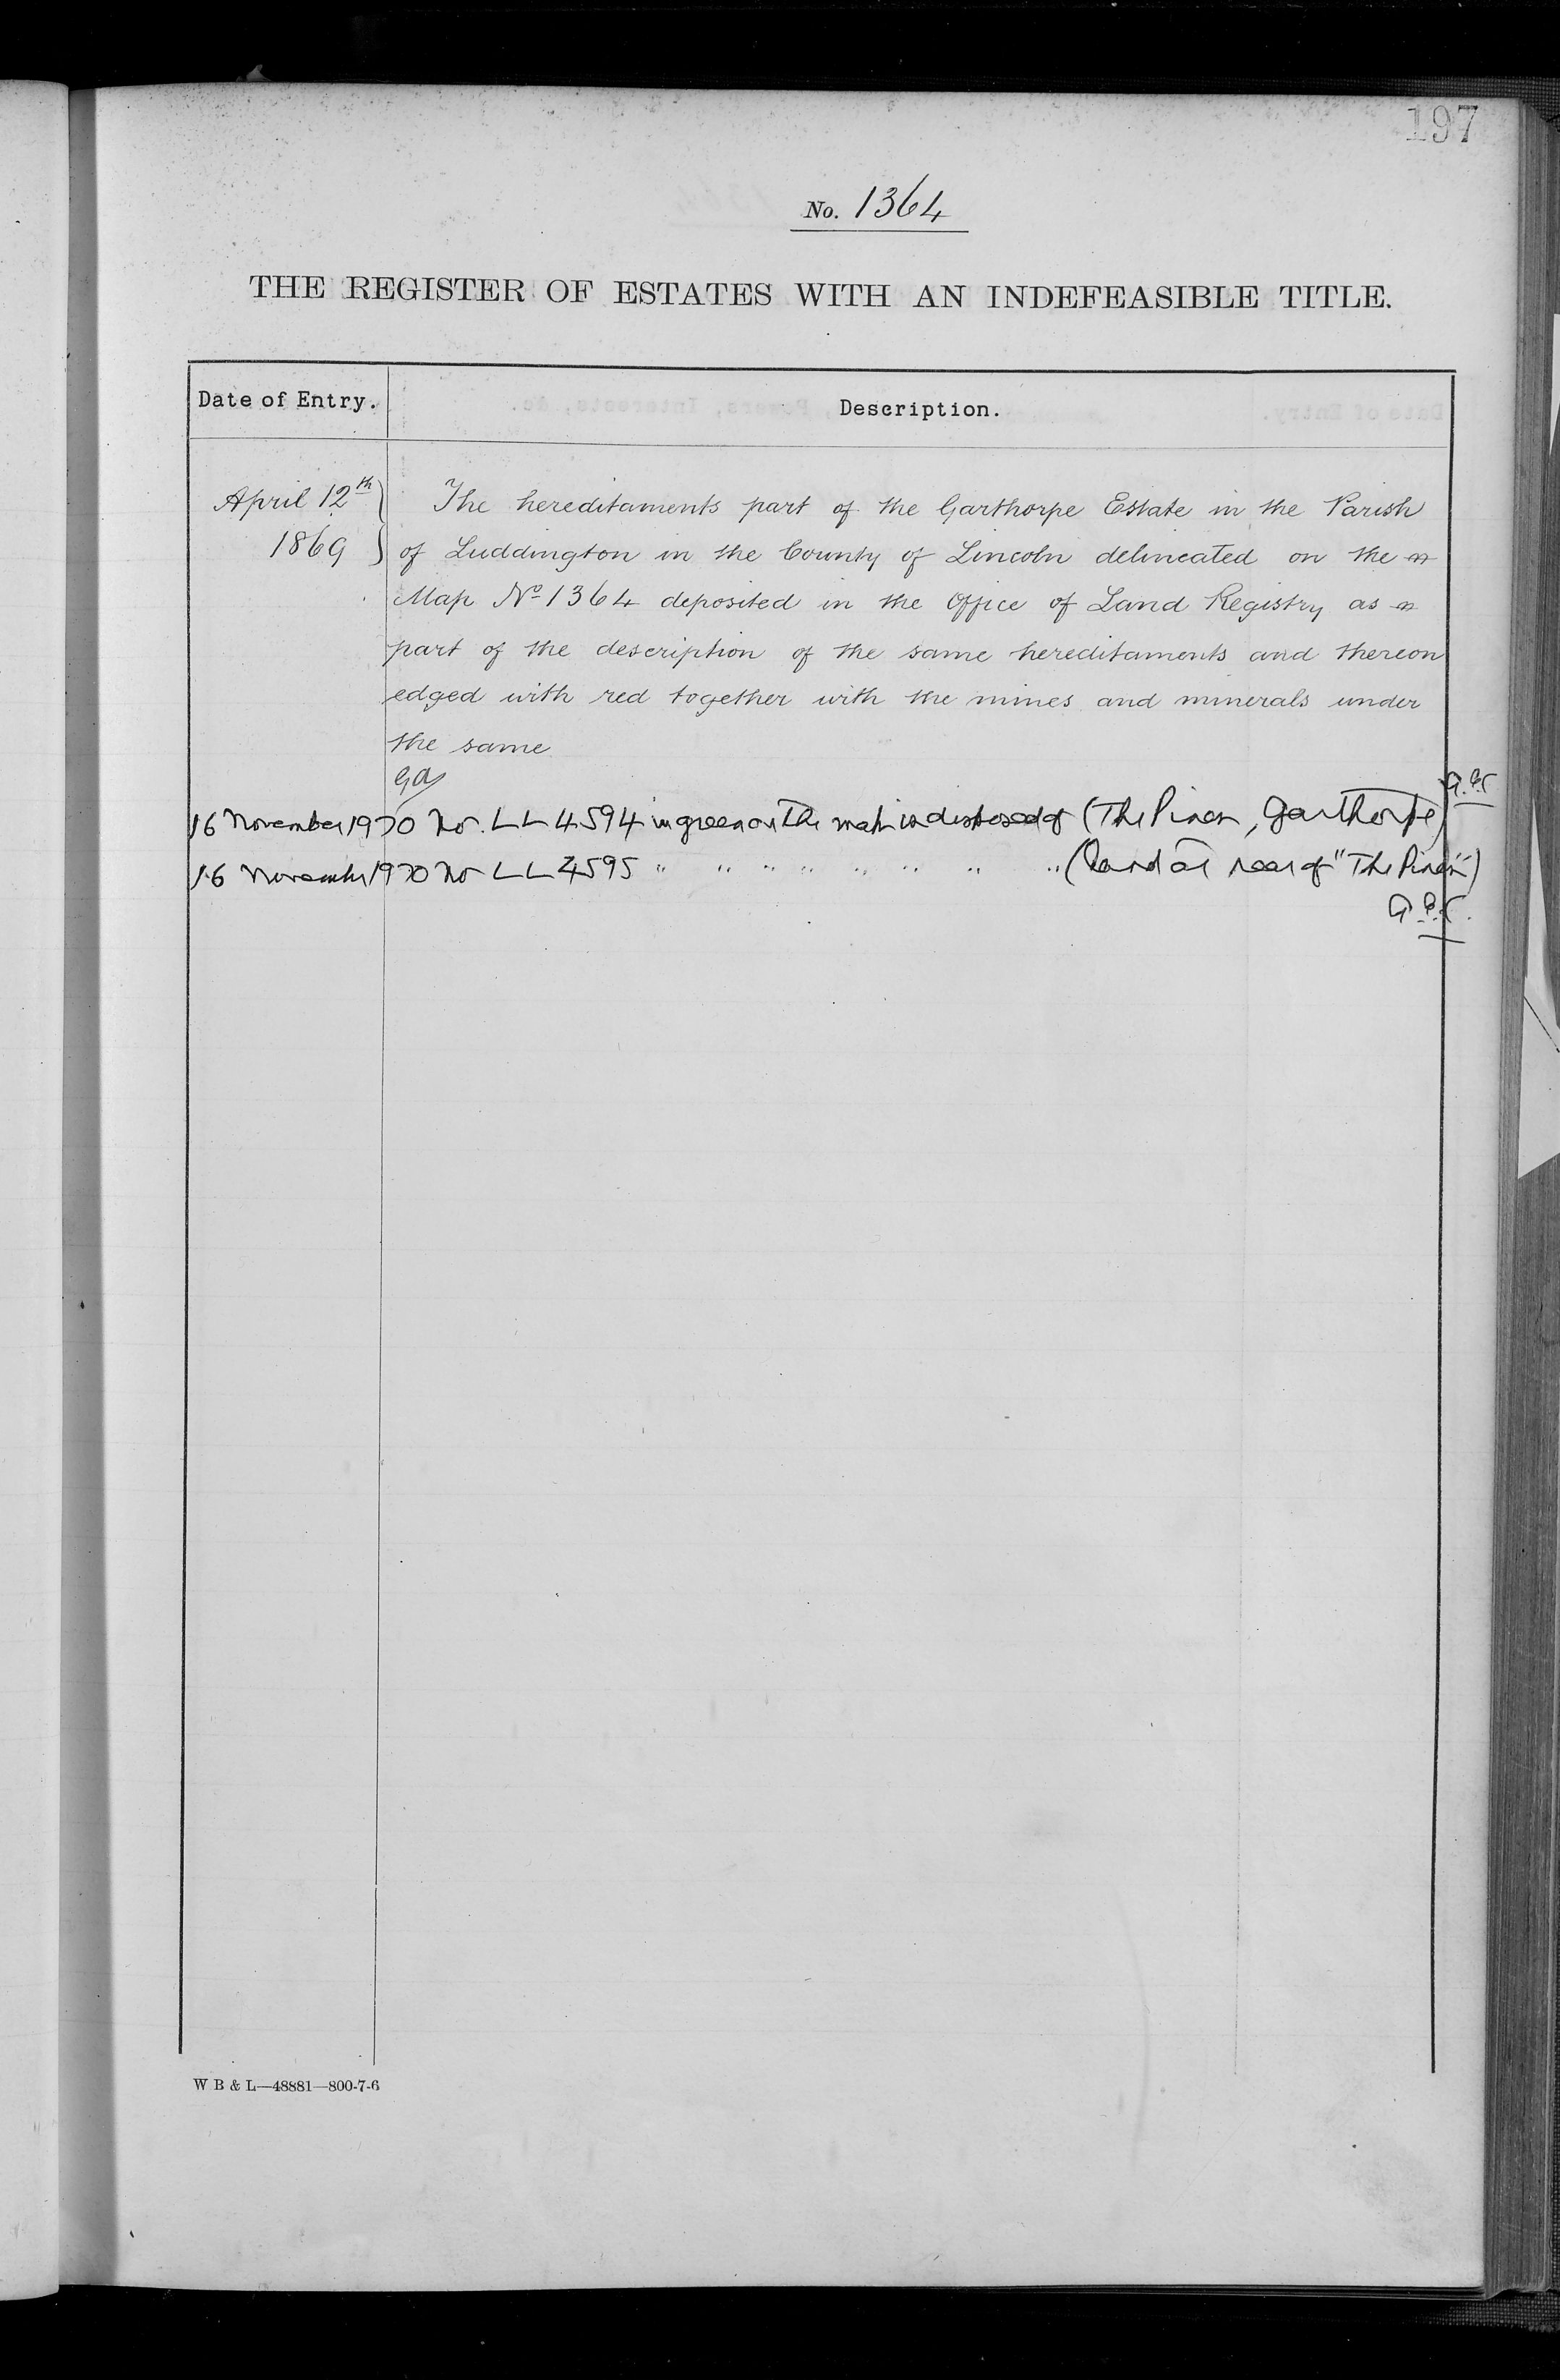 197
No. 1364
THE REGISTER OF ESTATES WITH AN INDEFEASIBLE TITLE.
Date of Entry. Description.
April 12th The hereditaments part of the Garthorpe Estate in the Parish
1869 of Luddington in the County of Lincoln delineated on the
Map No 1364 deposited in the Office of Land Registry as
part of the description of the same hereditaments and thereon
edged with red together with the mines and minerals under
the same
16 November 1970 No. LL 4594 in green on the map is disposed of (The Pines, Garthorpe)
16 November 1970 No LL 4595 " " " " " " " " (Land at rear of "The Pines")
W B & L—48881—800-7-6